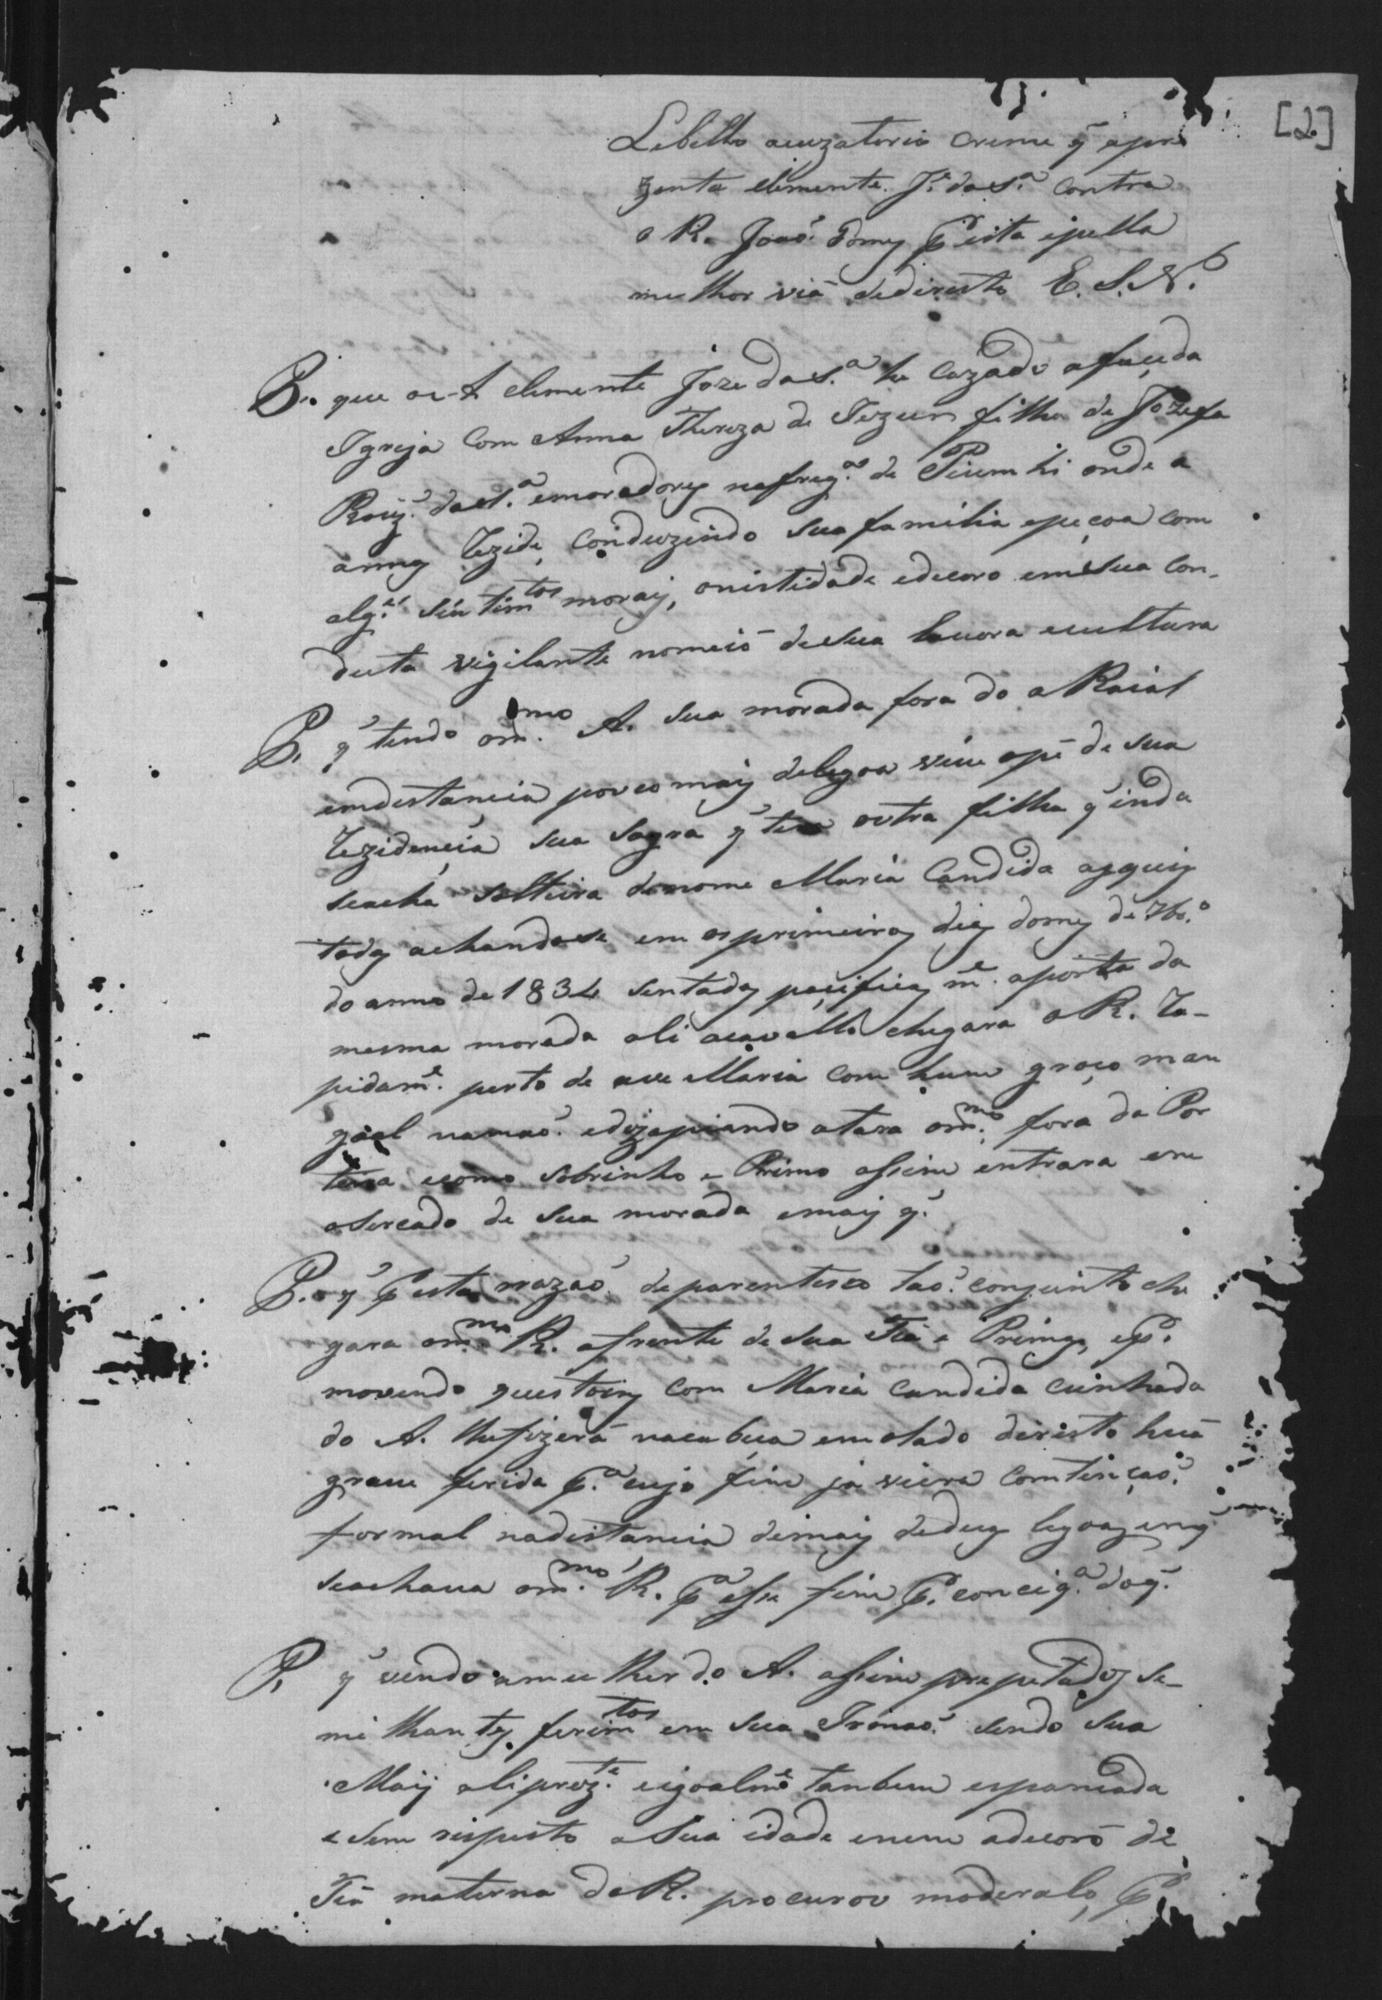 [2]
Lebello acuzatorio crime q̃ apre
zenta Clemente J.e da S.a contra
o R. João Gomes P esta e pella
melhor via de direito E. S. N.
P. que o A Clemente Joze da S.a he cazado a face da
Igreja com Anna Thereza de Jezus filha de Jozefa
Roiz' da S.a e moradores na freg.a de Piumhi onde a
annos rezide, conduzindo sua familia e peçoa com
alg.s sintimtos moraes, onistidade e decoro em sua con-
duta vigilante nomeio de sua lavora e cultura
P. q̃ tendo o m.mo A. sua morada fora do a Raial
em distancia pouco mais de legoa vive ope de sua
rezidencia sua sogra q̃ tem outra filha q̃ inda
se acha solteira de nome Maria Candida as quais
todas achandose em os primeiros dias do mes de 7br.o
do anno de 1834 sentadas pacificam.e aporta da
mesma morada ali acavallo chegara o R. ra-
pidam.e perto de ave Maria com hum groço man
goal na mão edizapiando atara o m.mo fora da Por
teira ecomo sobrinho e Primo assim entrara em
o sercado de sua morada e mais q̃
P. q̃ P esta razão de parentesco tão conjunto che
gara o m.mo R. afrente de sua Tia e Primas, e P.
movendo questoins com Maria Candida cunhada
do A. lhe fizera na cabeça em o lado direito huã
grave ferida P.a cujo fim já viera com tenção
formal na distancia de mais de duas legoas em q̃
se achava o m.mo R. P.a esse fim P. concig.a do q̃
P. q̃ vendo a mulher do A. assim prepetados se-
milhantes ferimtos em sua Irmaã sendo sua
May ali prez.te e igoalm.e tanbem espancada
e sem respeito a sua idade e nem adecoro de
Tia materna do R. procurou moderalo, P.